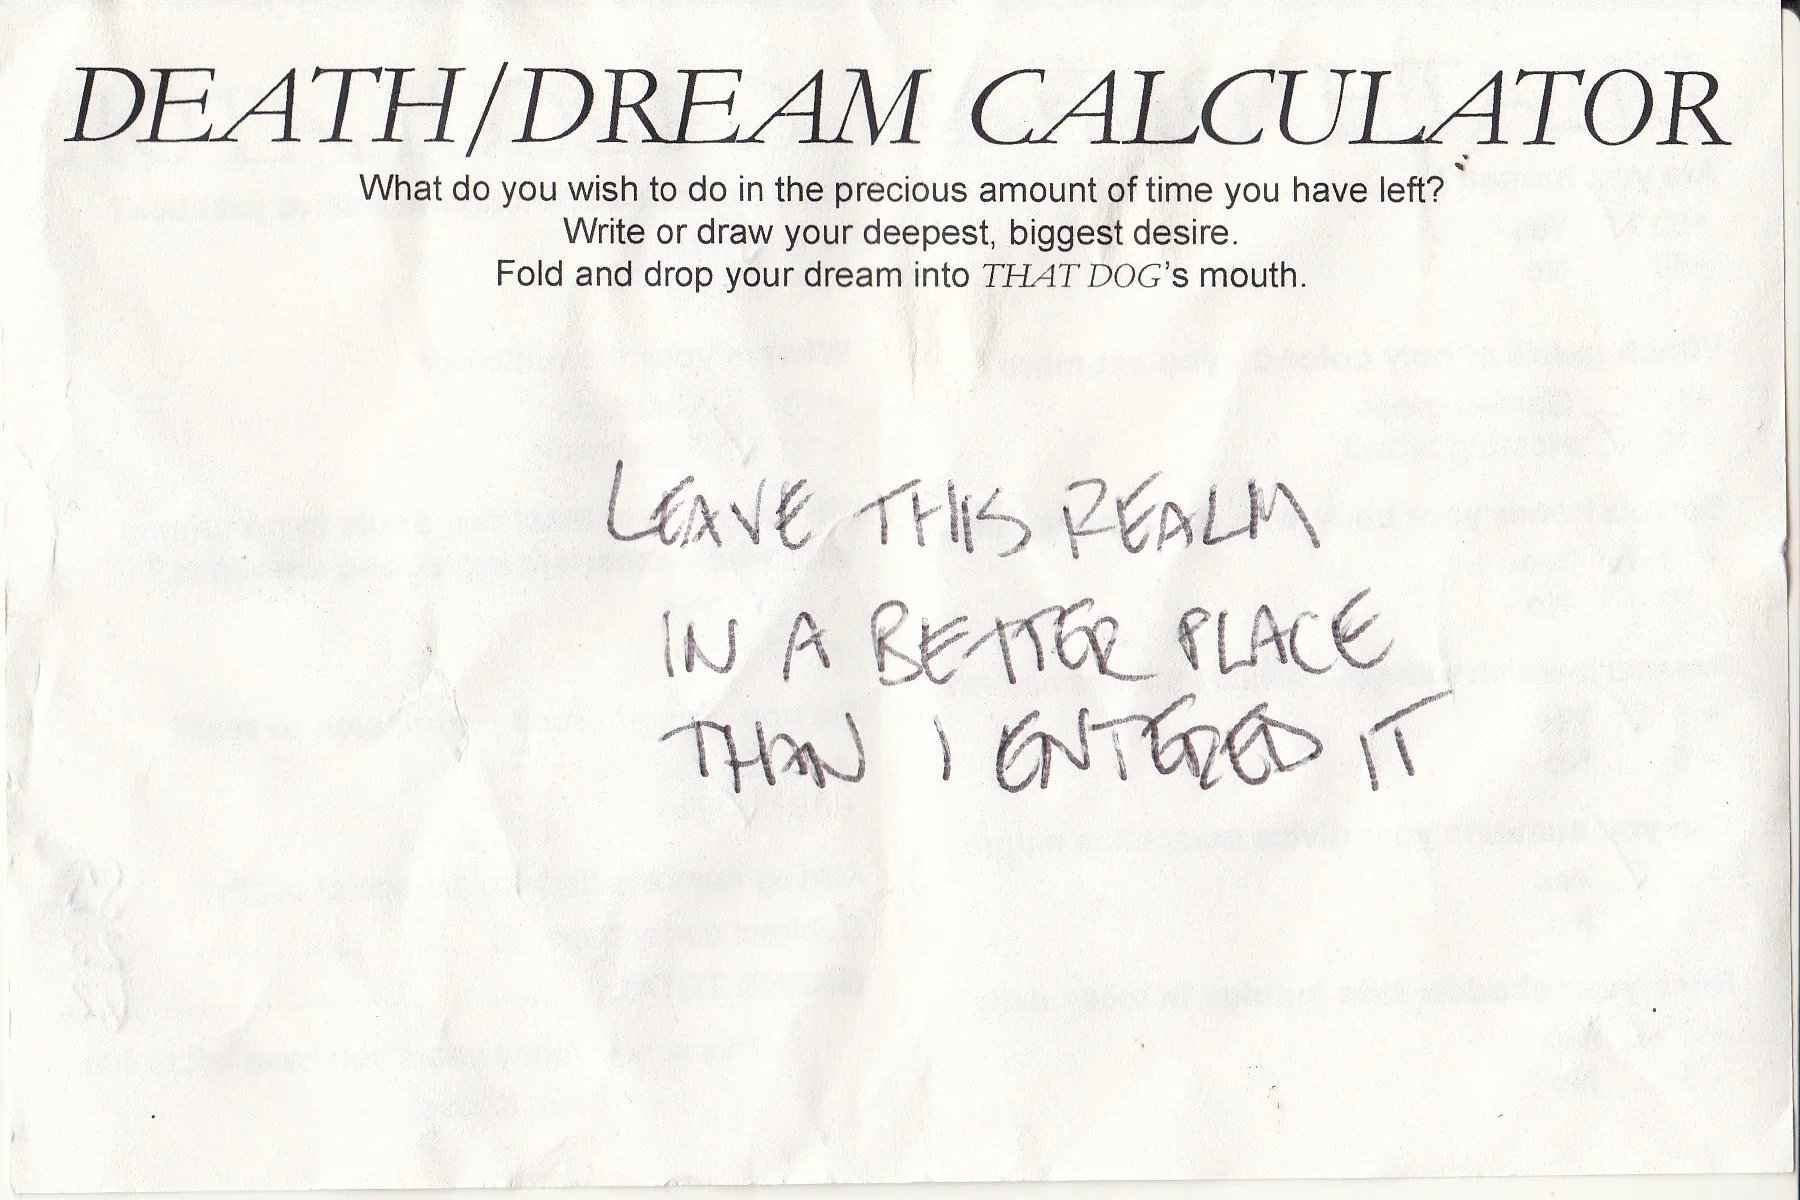 DEATH/DREAM CALCULATOR
What do you wish to do in the precious amount of time you have left?
Write or draw your deepest, biggest desire.
Fold and drop your dream into THAT DOG's mouth.
LEAVE THIS REALM
IN A BETTER PLACE
THAN I ENTERED IT